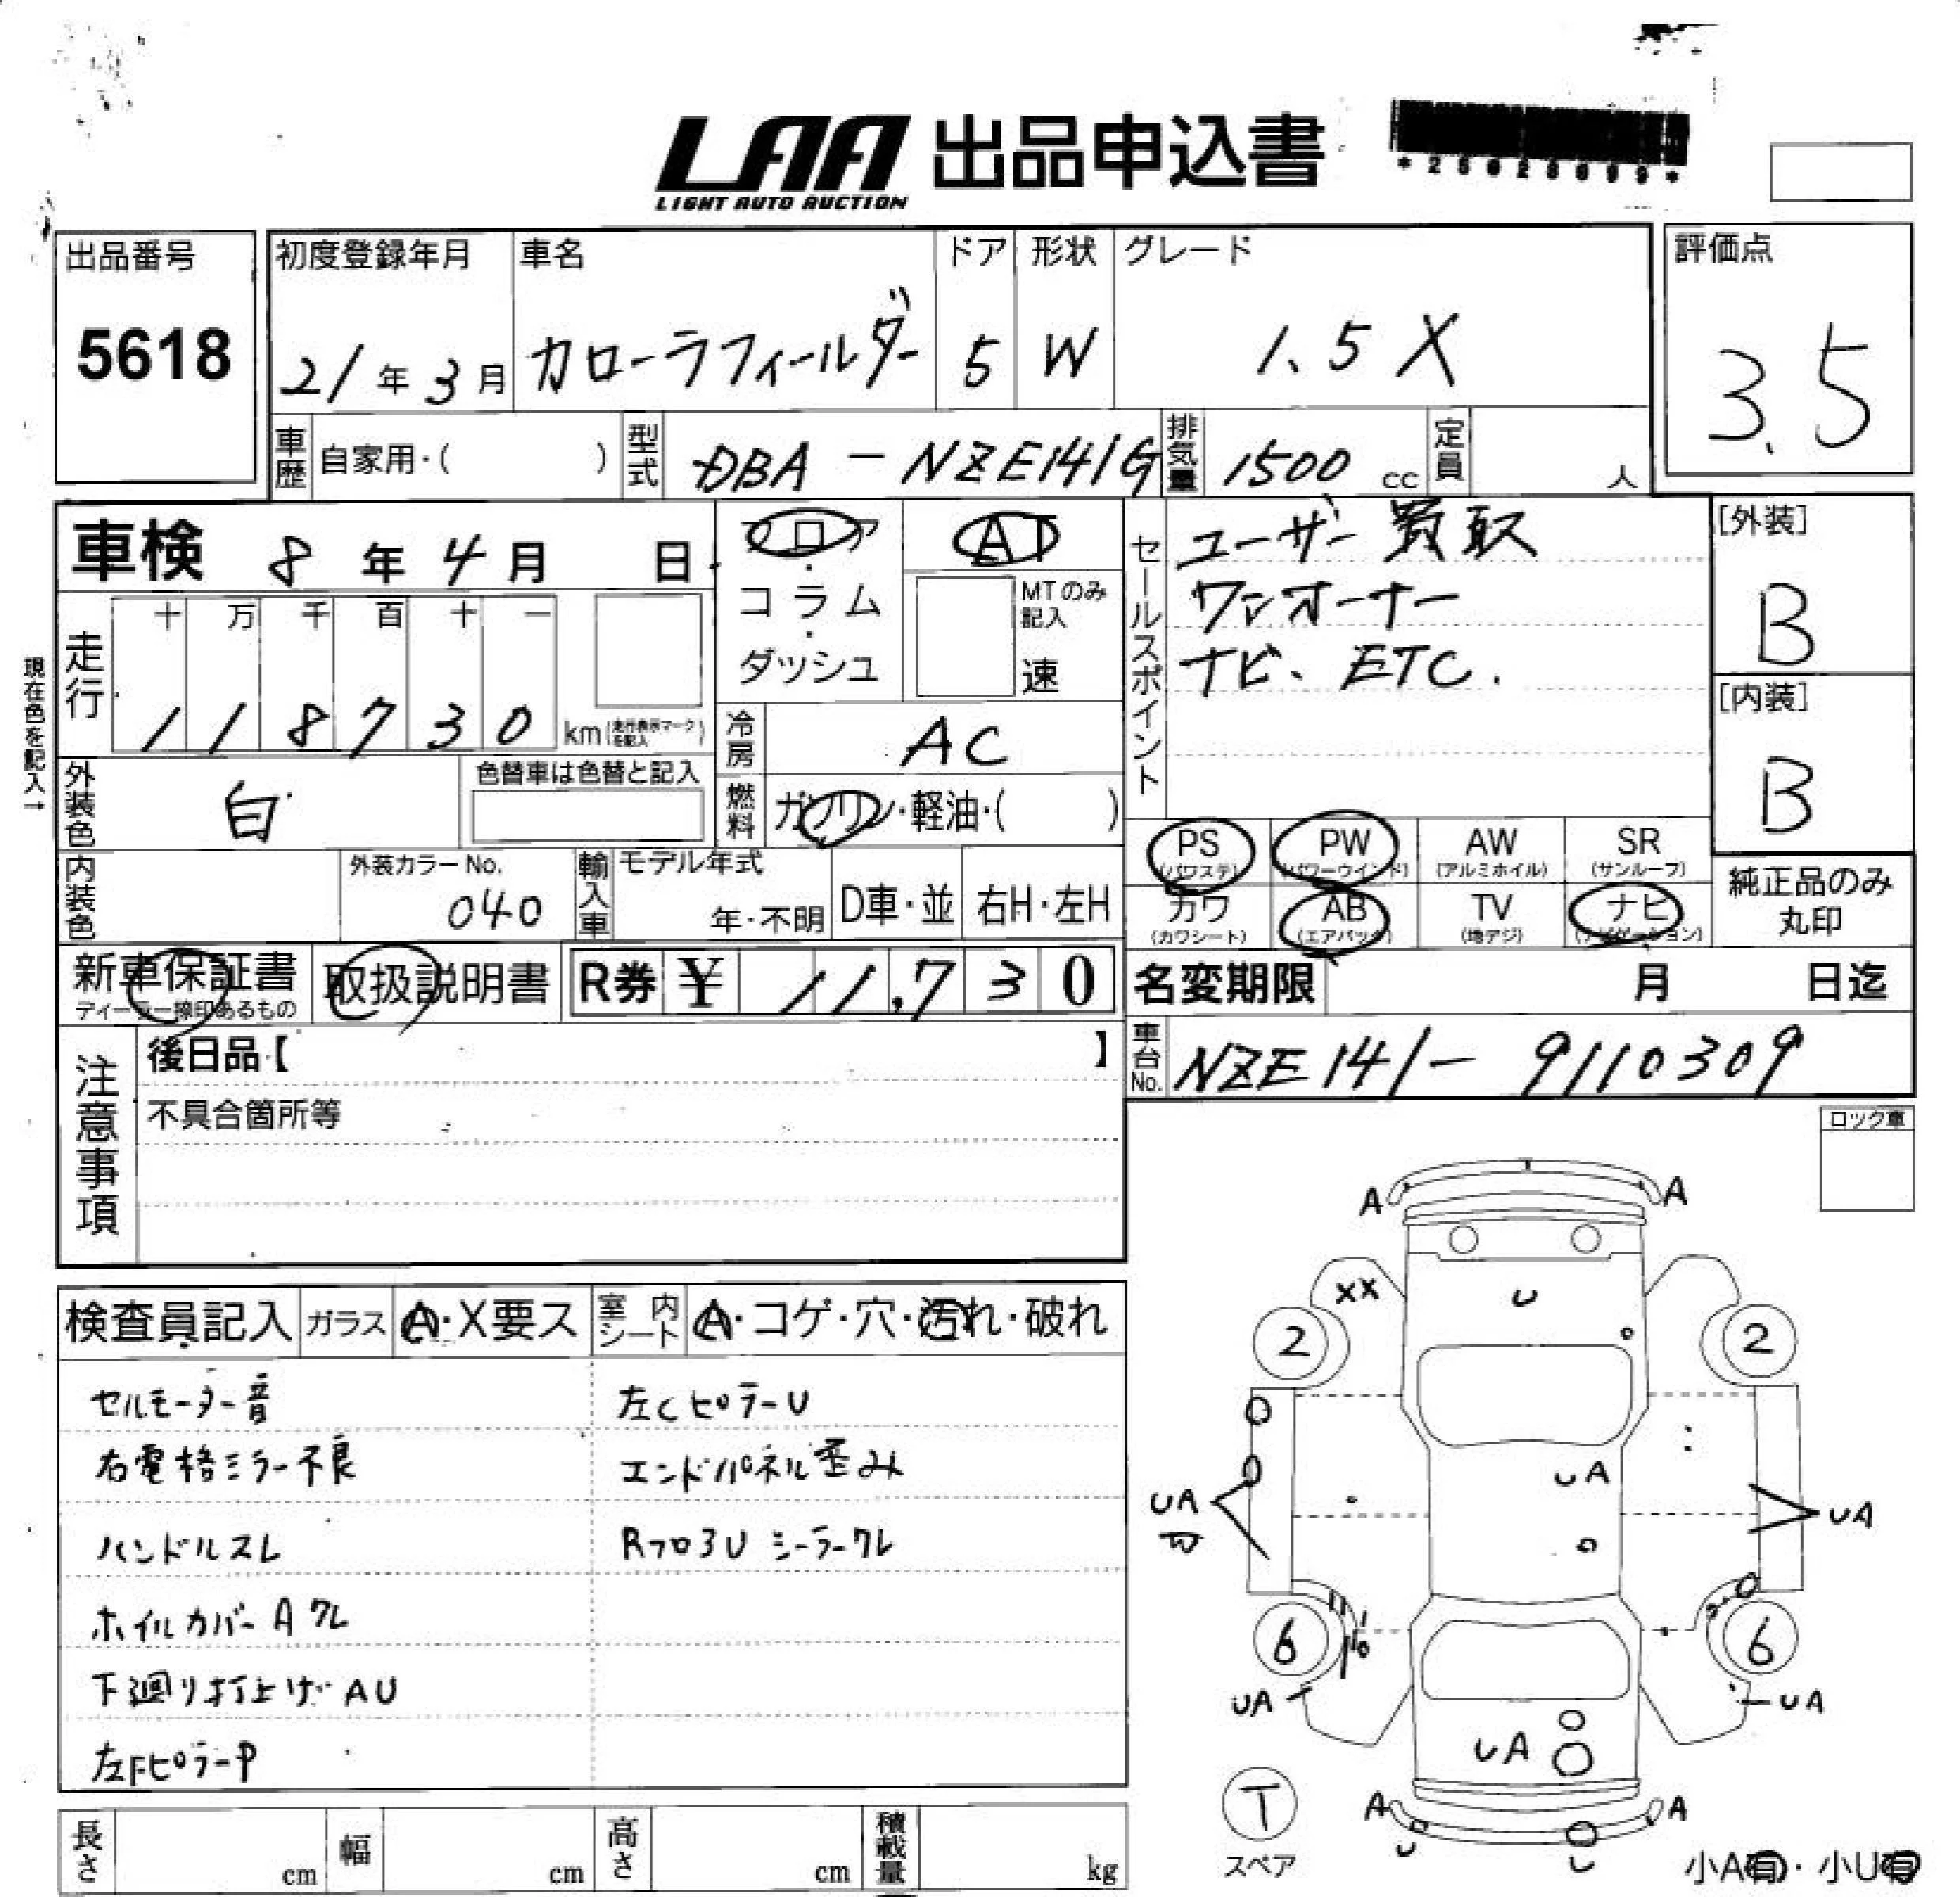 LAA 出品申込書
LIGHT AUTO AUCTION
出品番号 5618
初度登録年月 21年3月
車名 カローラフィールダー
ドア 5
形状 W
グレード 1.5X
評価点 3.5
車歴 自家用・( )
型式 DBA-NZE141G
排気量 1500 cc
定員 人
車検 8年4月 日
フロア・コラム・ダッシュ
AT
MTのみ記入 速
現在色を記入→
走行 十 万 千 百 十 一
118730 km(走行表示マークを記入)
冷房 AC
燃料 ガソリン・軽油・( )
外装色 白
色替車は色替と記入
内装色
外装カラーNo. 040
輸入車 モデル年式 年・不明
D車・並 右H・左H
セールスポイント
ユーザー買取
ワンオーナー
ナビ、ETC.
[外装] B
[内装] B
PS (パワステ) PW (パワーウインド) AW (アルミホイル) SR (サンルーフ)
カワ (カワシート) AB (エアバック) TV (地デジ) ナビ (ナビゲーション)
純正品のみ丸印
新車保証書 ディーラー捺印あるもの
取扱説明書
R券 ¥ 11,730
名変期限 月 日迄
車台No. NZE141-9110309
注意事項
後日品【 】
不具合箇所等
ロック車
検査員記入 ガラス A・X要ス 室内シート A・コゲ・穴・汚れ・破れ
セルモーター音
右電格ミラー不良
ハンドルスレ
ホイルカバーAワレ
下廻り打上げAU
左FピラーP
左CピラーU
エンドパネル歪み
RフロアU シーラーワレ
A A
XX U
2 2
UA
UA UA
6 6
UA UA
UA
A A
U U
T スペア
小A有・小U有
長さ cm 幅 cm 高さ cm 積載量 kg